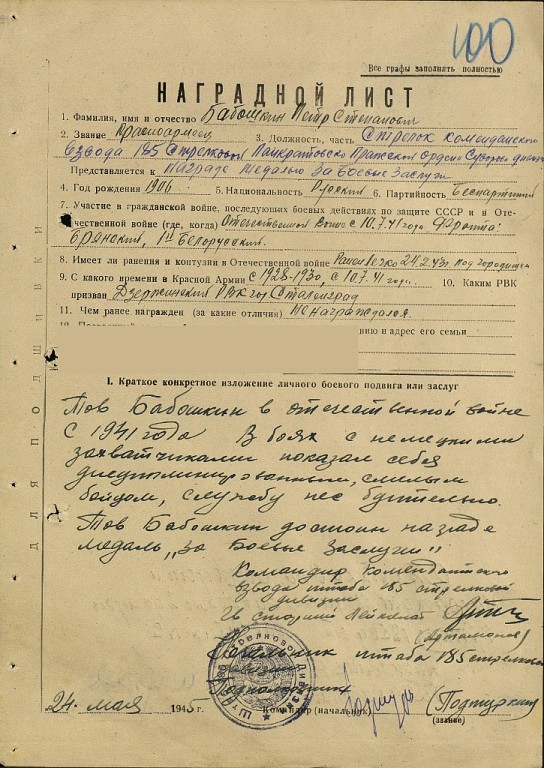 100
Все графы заполнять полностью
НАГРАДНОЙ ЛИСТ
1. Фамилия, имя и отчество Бабошкин Петр Степанович
2. Звание Красноармеец 3. Должность, часть Стрелок комендантского
взвода 185 Стрелковой Панкратовско Пражской ордена Суворова дивизии
Представляется к Награде Медалью За Боевые Заслуги
4. Год рождения 1906 5. Национальность Русский 6. Партийность Беспартийный
7. Участие в гражданской войне, последующих боевых действиях по защите СССР и в Оте-
чественной войне (где, когда) Отечественная Война с 10.7.41 года Фронта:
Брянский, 1й Белорусский.
8. Имеет ли ранения и контузии в Отечественной войне Ранен легко 24.2.43г. под
9. С какого времени в Красной Армии с 1928-1930, с 10.7.41 года. 10. Каким РВК
призван Дзержинский РВК гор Сталинград
11. Чем ранее награжден (за какие отличия) Не награждался
нию и адрес его семьи
I. Краткое конкретное изложение личного боевого подвига или заслуг
Тов Бабошкин в отечественной войне
с 1941 года В боях с немецкими
захватчиками показал себя
дисциплинированным, смелым
бойцом, службу нес бдительно.
Тов Бабошкин достоин награде
медаль „За Боевые Заслуги"
Командир комендантского
взвода штаба 185 стрелковой
дивизии
Гв старший лейтенант
(Артамонов)
Начальник штаба 185 стрелковой
дивизии
Подполковник
(Подтуркин)
24. мая 1945 г. Командир (начальник) (звание)
ДЛЯ ПОДШИВКИ